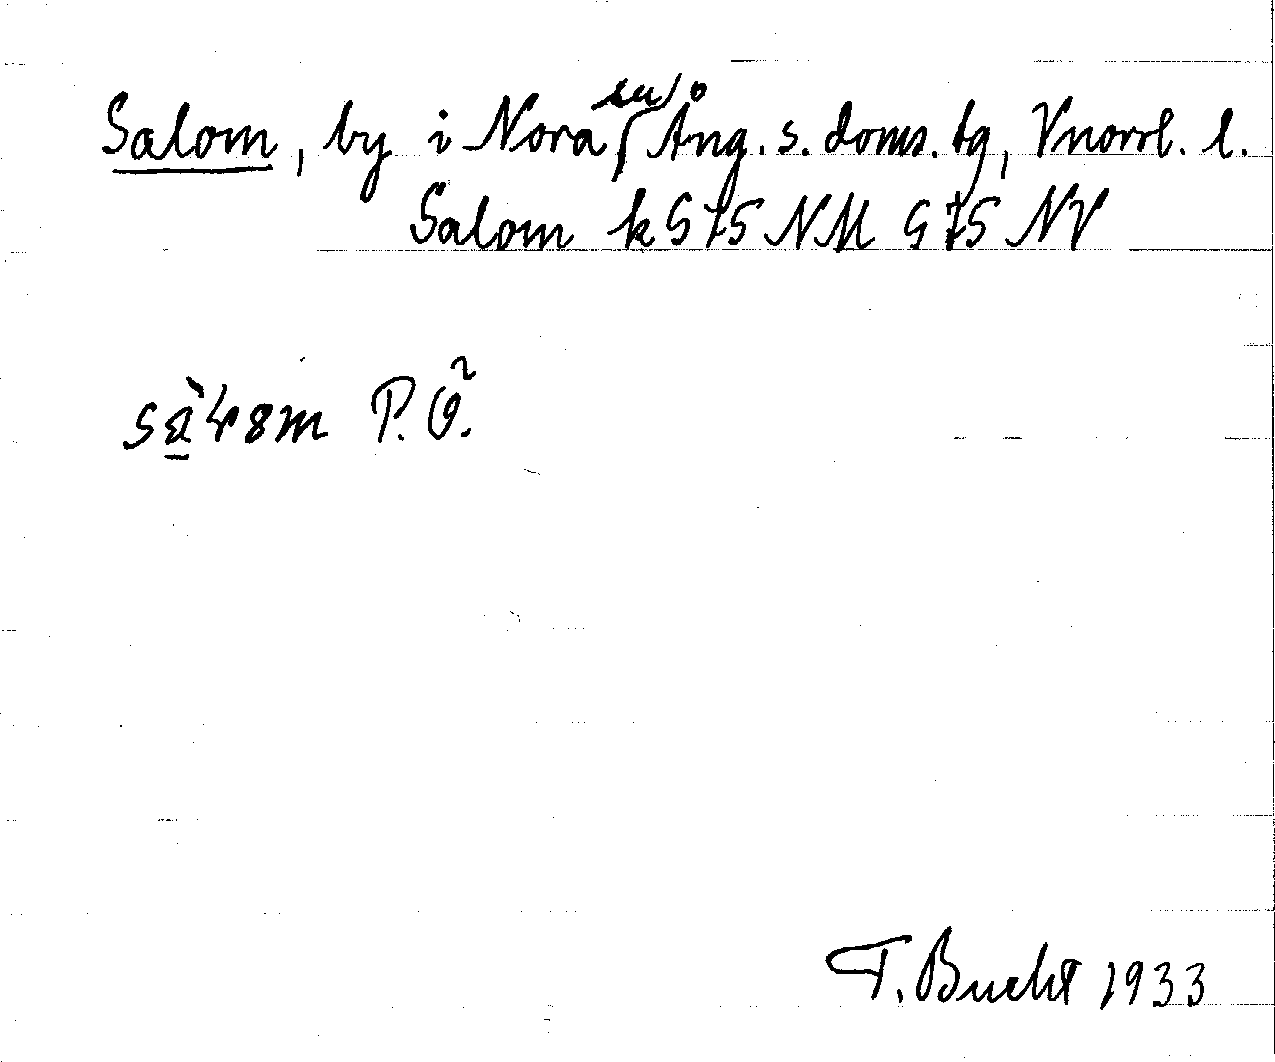 Salom, by i Nora sn/ Ång. s. doms. tg, Vnorrl. l.
Salom k S JS NM S JS NV
P. Ö.
T. Bucht 1933